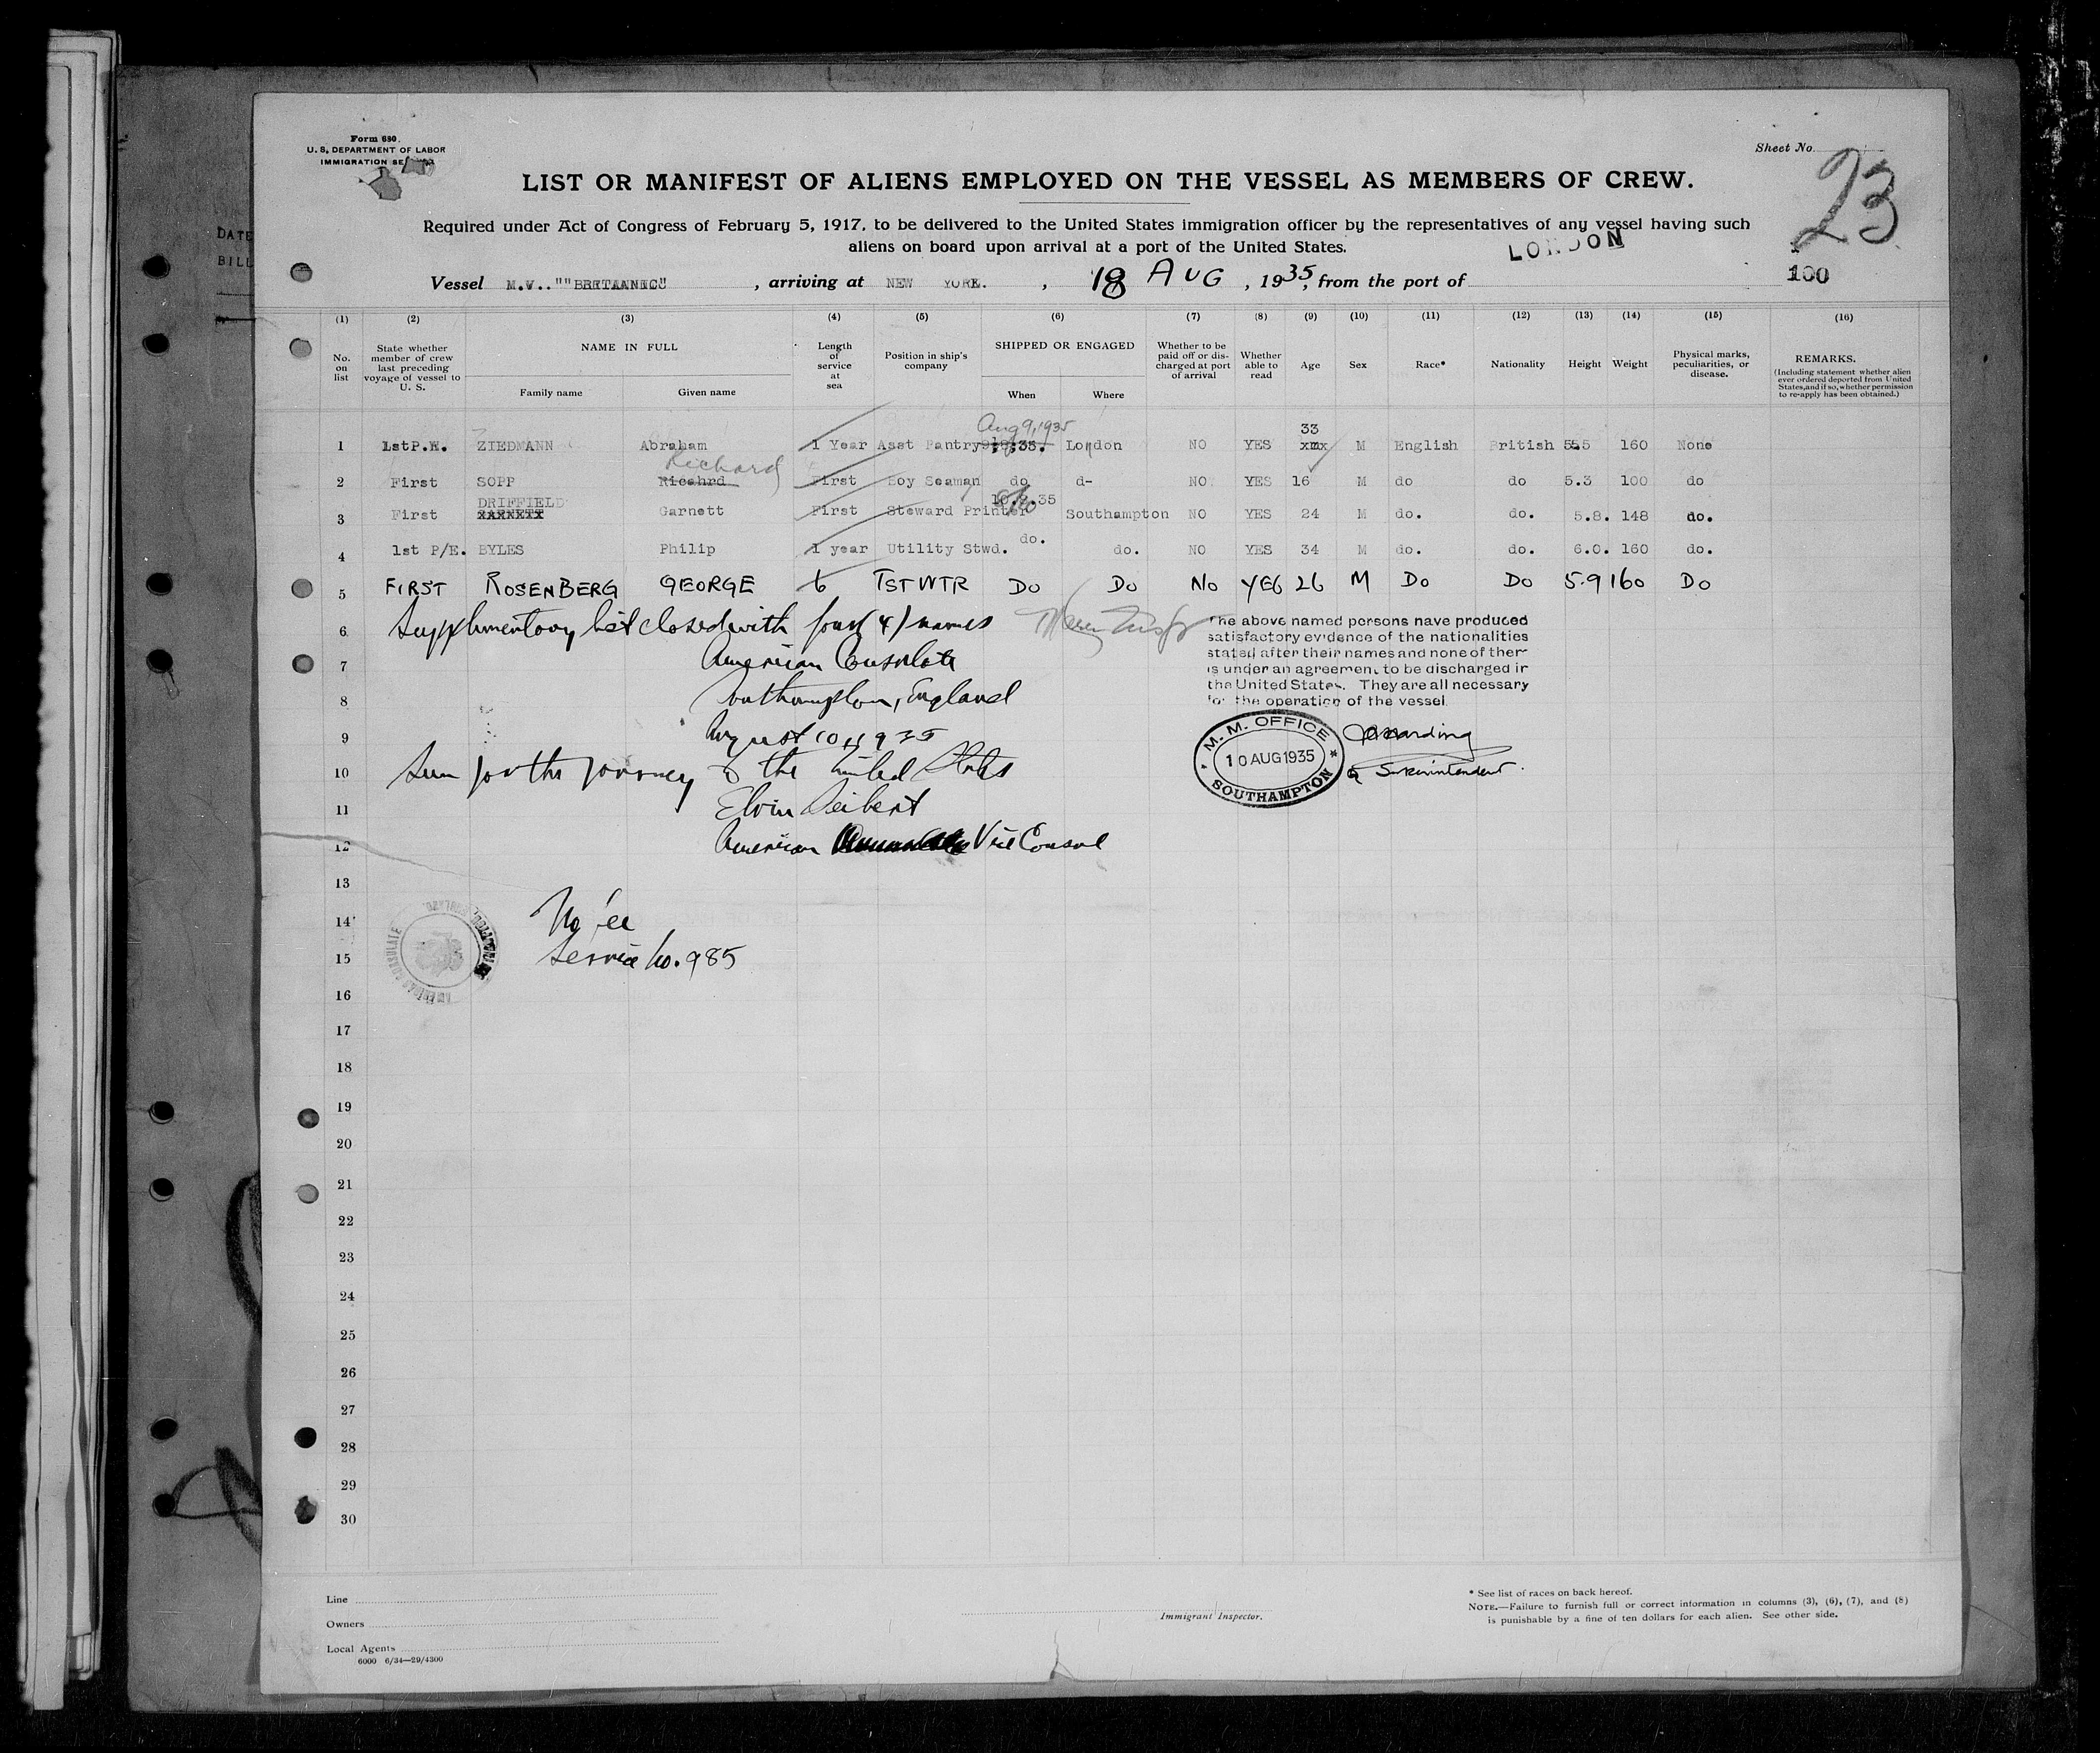 Form 680.
U. S. DEPARTMENT OF LABOR
IMMIGRATION
Sheet No.
23
LIST OR MANIFEST OF ALIENS EMPLOYED ON THE VESSEL AS MEMBERS OF CREW.
Required under Act of Congress of February 5, 1917, to be delivered to the United States immigration officer by the representatives of any vessel having such
aliens on board upon arrival at a port of the United States.
LONDON
Vessel M.V.. ""BRITANNIC" , arriving at NEW YORK. , 18 AUG , 1935, from the port of
100
DATE
BILL
(1) (2) (3) (4) (5) (6) (7) (8) (9) (10) (11) (12) (13) (14) (15) (16)
No. on list
State whether member of crew last preceding voyage of vessel to U. S.
NAME IN FULL
Family name Given name
Length of service at sea
Position in ship's company
SHIPPED OR ENGAGED
When Where
Whether to be paid off or discharged at port of arrival
Whether able to read
Age Sex Race* Nationality Height Weight
Physical marks, peculiarities, or disease.
REMARKS.
(Including statement whether alien ever ordered deported from United States, and if so, whether permission to re-apply has been obtained.)
Aug 9, 1935
33
1 1stP.W. ZIEDMANN Abraham 1 Year Asst Pantry London NO YES M English British 5.5 160 None
Richard
2 First SOPP Ricahrd First Boy Seaman do d- NO. YES 16 M do do 5.3 100 do
DRIFFIELD 10.8.35
3 First Garnett First Steward Printer Southampton NO YES 24 M do. do. 5.8. 148 do.
4 1st P/E. BYLES Philip 1 year Utility Stwd. do. do. NO YES 34 M do. do. 6.0. 160 do.
5 FIRST ROSENBERG GEORGE 6 TST WTR DO DO NO YES 26 M DO DO 5.9 160 DO
6 Supplementary list closed with four (4) names
7 American Consulate
8 Southampton, England
9 August 10, 1935
10 Seen for the journey to the United States
11 Elvin Seibert
12 American Vice Consul
The above named persons have produced
satisfactory evidence of the nationalities
stated after their names and none of them
is under an agreement to be discharged in
the United States. They are all necessary
for the operation of the vessel
M. M. OFFICE
10 AUG 1935
SOUTHAMPTON
Harding
Superintendent.
13
14 No fee
15 Service No. 985
AMERICAN CONSULATE
16
17
18
19
20
21
22
23
24
25
26
27
28
29
30
Line
Owners
Local Agents
6000 6/34—29/4300
Immigrant Inspector.
* See list of races on back hereof.
NOTE.—Failure to furnish full or correct information in columns (3), (6), (7), and (8)
is punishable by a fine of ten dollars for each alien. See other side.